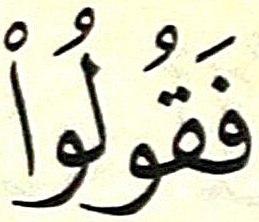 فَقُولُواْ